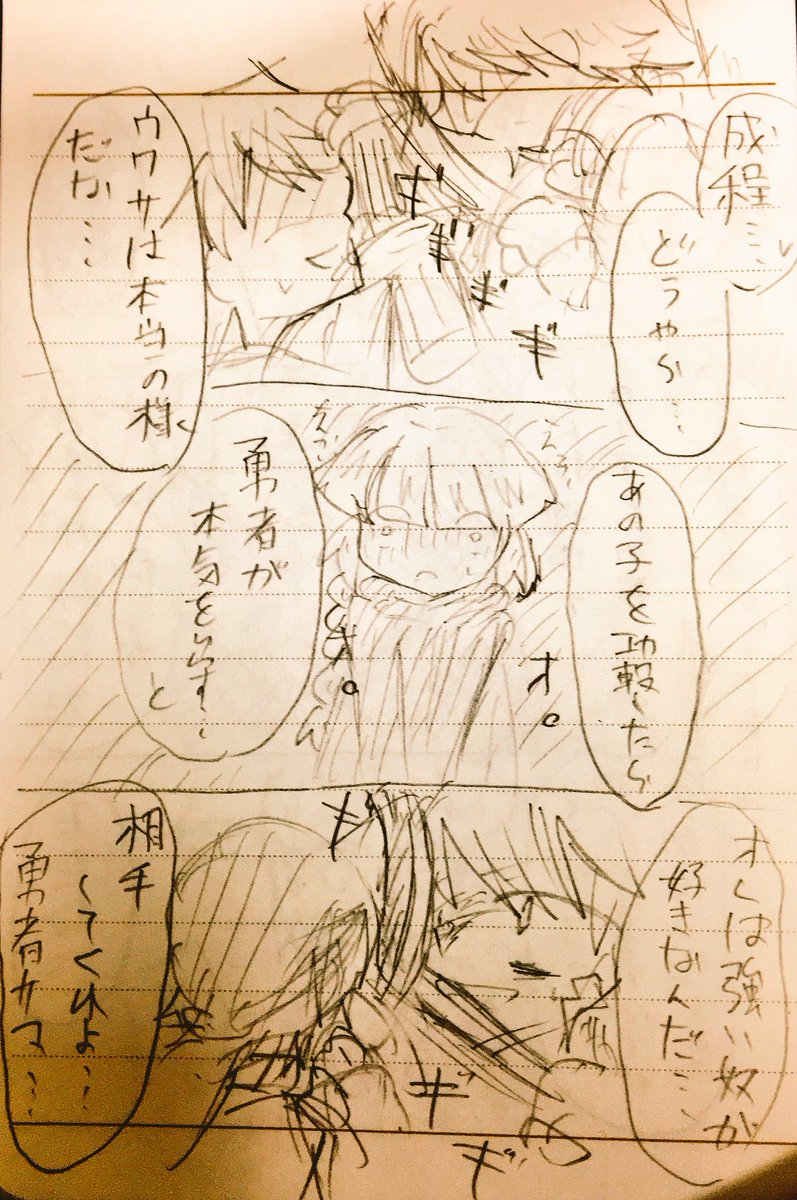 成程…
どうやら…
ウワサは本当の様
だな…
ギ
ギ
ギ
ギ
あの子を攻撃したら
勇者が
本気を出す…
と
え…
オ。
オ。
オレは強い奴が
好きなんだ…
相手
してくれよ…
勇者サマ…
ギ
ギ
ギ